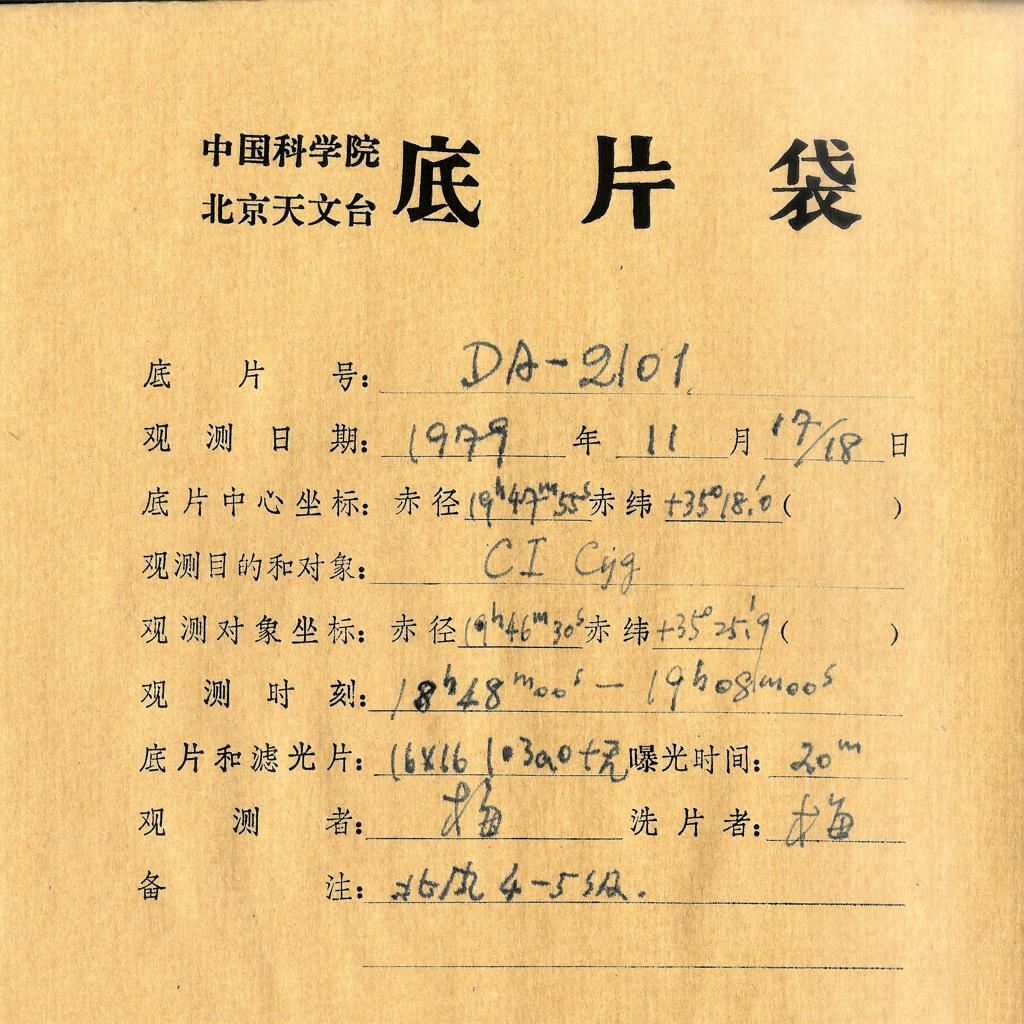 中国科学院
北京天文台
底片袋
底片号: DA-2101
观测日期: 1979 年 11 月 17/18 日
底片中心坐标: 赤径 19ʰ47ᵐ55ˢ 赤纬 +35°18.′0 ( )
观测目的和对象: CI Cyg
观测对象坐标: 赤径 19ʰ46ᵐ30ˢ 赤纬 +35°25.′9 ( )
观测时刻: 18ʰ48ᵐ00ˢ — 19ʰ08ᵐ00ˢ
底片和滤光片: 16×16 103aO+无 曝光时间: 20ᵐ
观测者: 梅 洗片者: 梅
备注: 北风 4-5级.